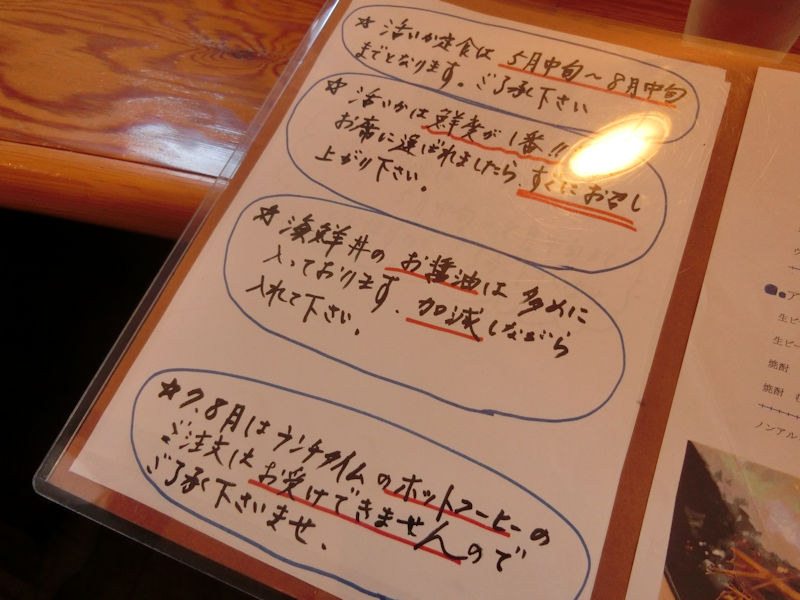 ☆ 活いか定食は 5月中旬〜8月中旬
までとなります。ご了承下さい
☆ 活いかは 鮮度が1番!!
お席に運ばれましたら、すぐにお召し
上がり下さい。
☆ 海鮮丼の お醤油は 多めに
入っております。加減しながら
入れて下さい。
☆ 7.8月は ランチタイムのホットコーヒーの
ご注文は お受けできませんので
ご了承下さいませ。
ア
生ビ
生ビー
焼酎
焼酎
ノンアル